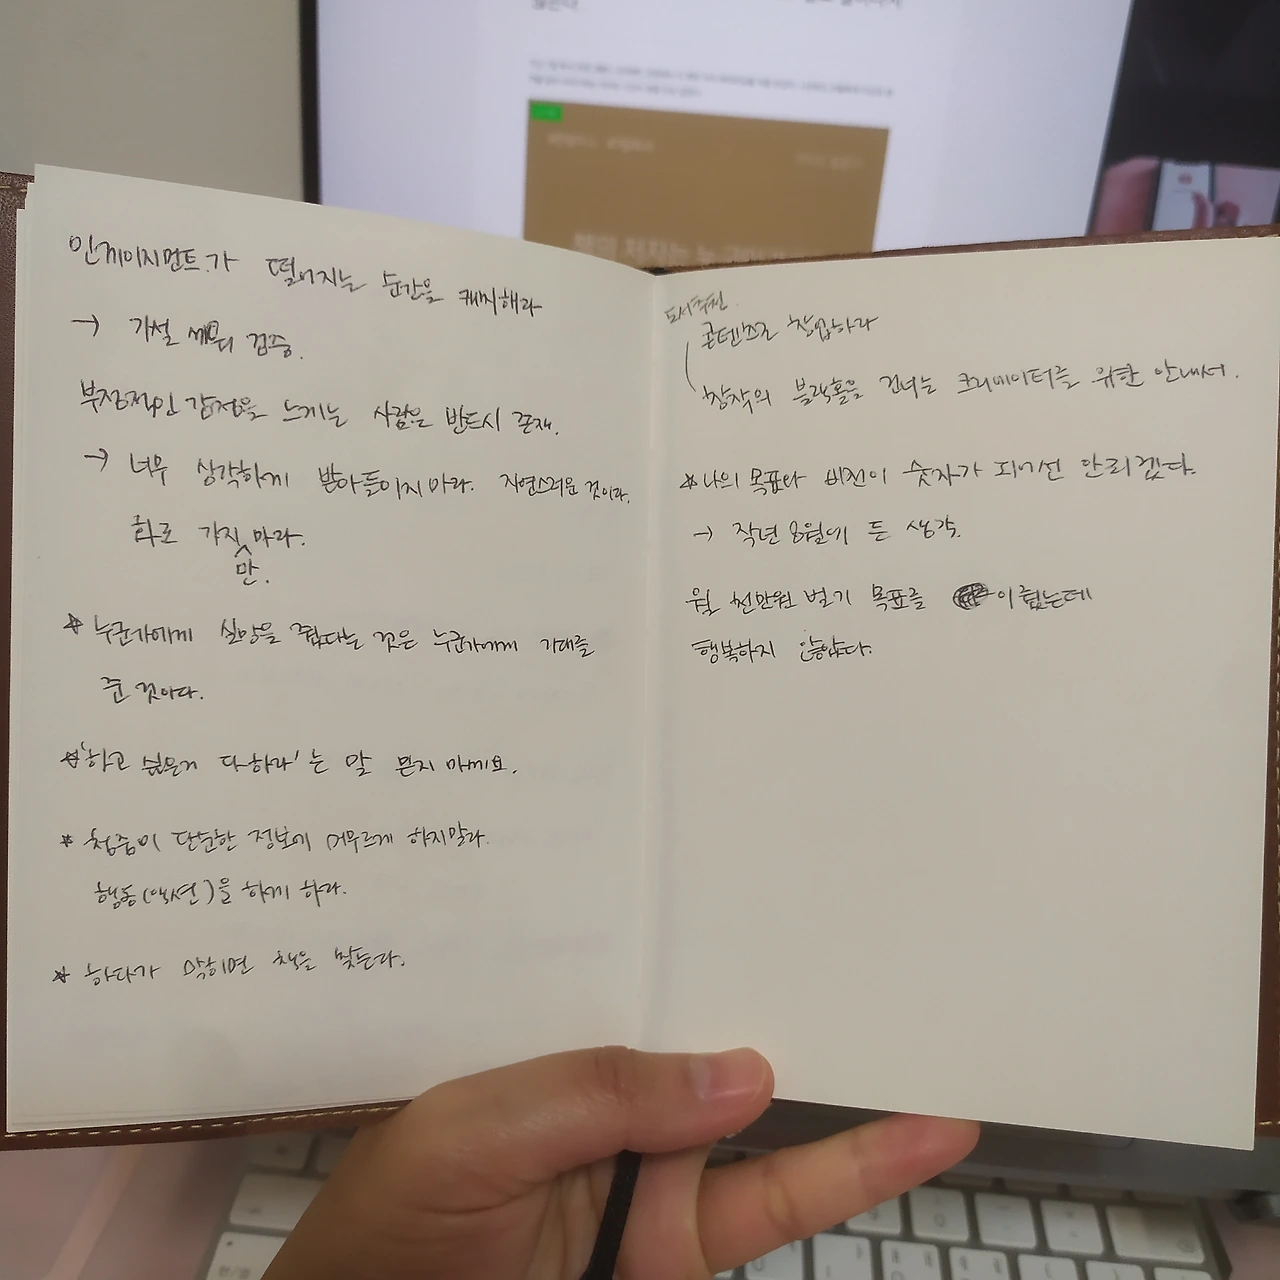 인게이지먼트가 떨어지는 순간을 캐치해라
→ 가설 세우기 검증.
부정적인 감정을 느끼는 사람은 반드시 존재.
→ 너무 심각하게 받아들이지 마라. 자연스러운 것이다.
화로 가직 마라.
만.
* 누군가에게 실망을 줬다는 것은 누군가에게 기대를
준 것이다.
* '하고 싶은거 다하라'는 말 믿지 마세요.
* 청중이 단순한 정보에 머무르게 하지말라.
행동(액션)을 하게 하라.
* 하다가 막히면 책을 찾는다.
도서추천.
콘텐츠로 창업하라
창작의 블랙홀을 건너는 크리에이터를 위한 안내서.
* 나의 목표와 비전이 숫자가 되기선 안되겠다.
→ 작년 8월에 든 생각.
월 천만원 벌기 목표를 이뤘는데
행복하지 않았다.